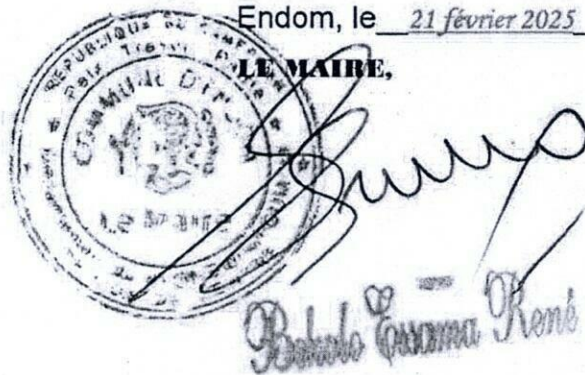 Endom, le 21 février 2025
LE MAIRE,
REPUBLIQUE DU CAMEROUN
Paix Travail Patrie
COMMUNE D'ENDOM
Le Maire
René